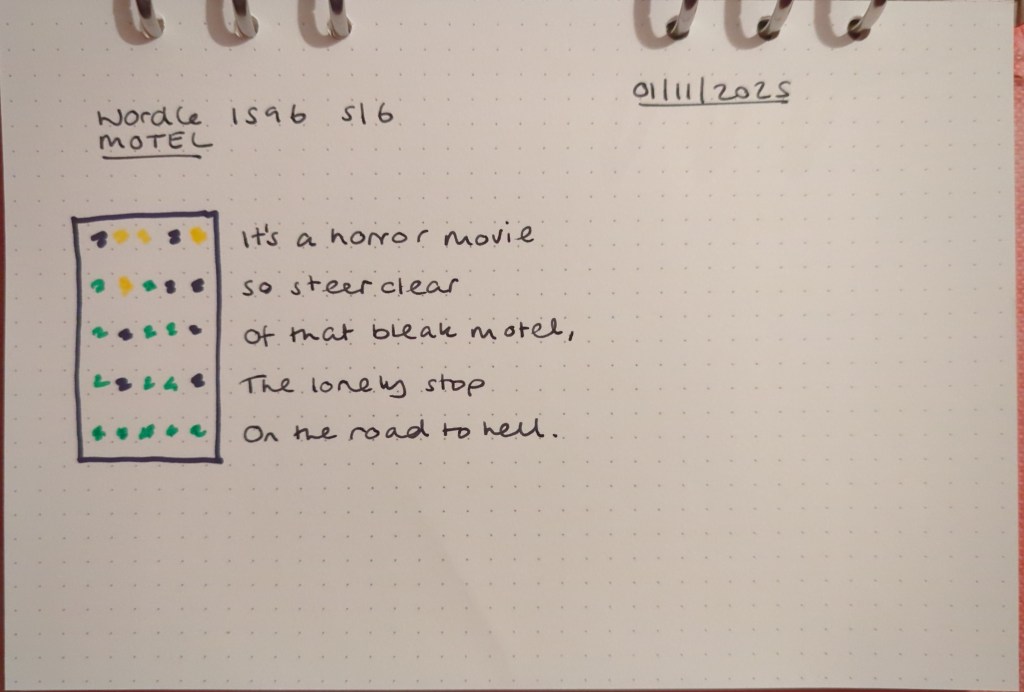 01/11/2025
Wordle 1596 5/6
MOTEL
It's a horror movie
so steer clear
Of that bleak motel,
The lonely stop
On the road to hell.